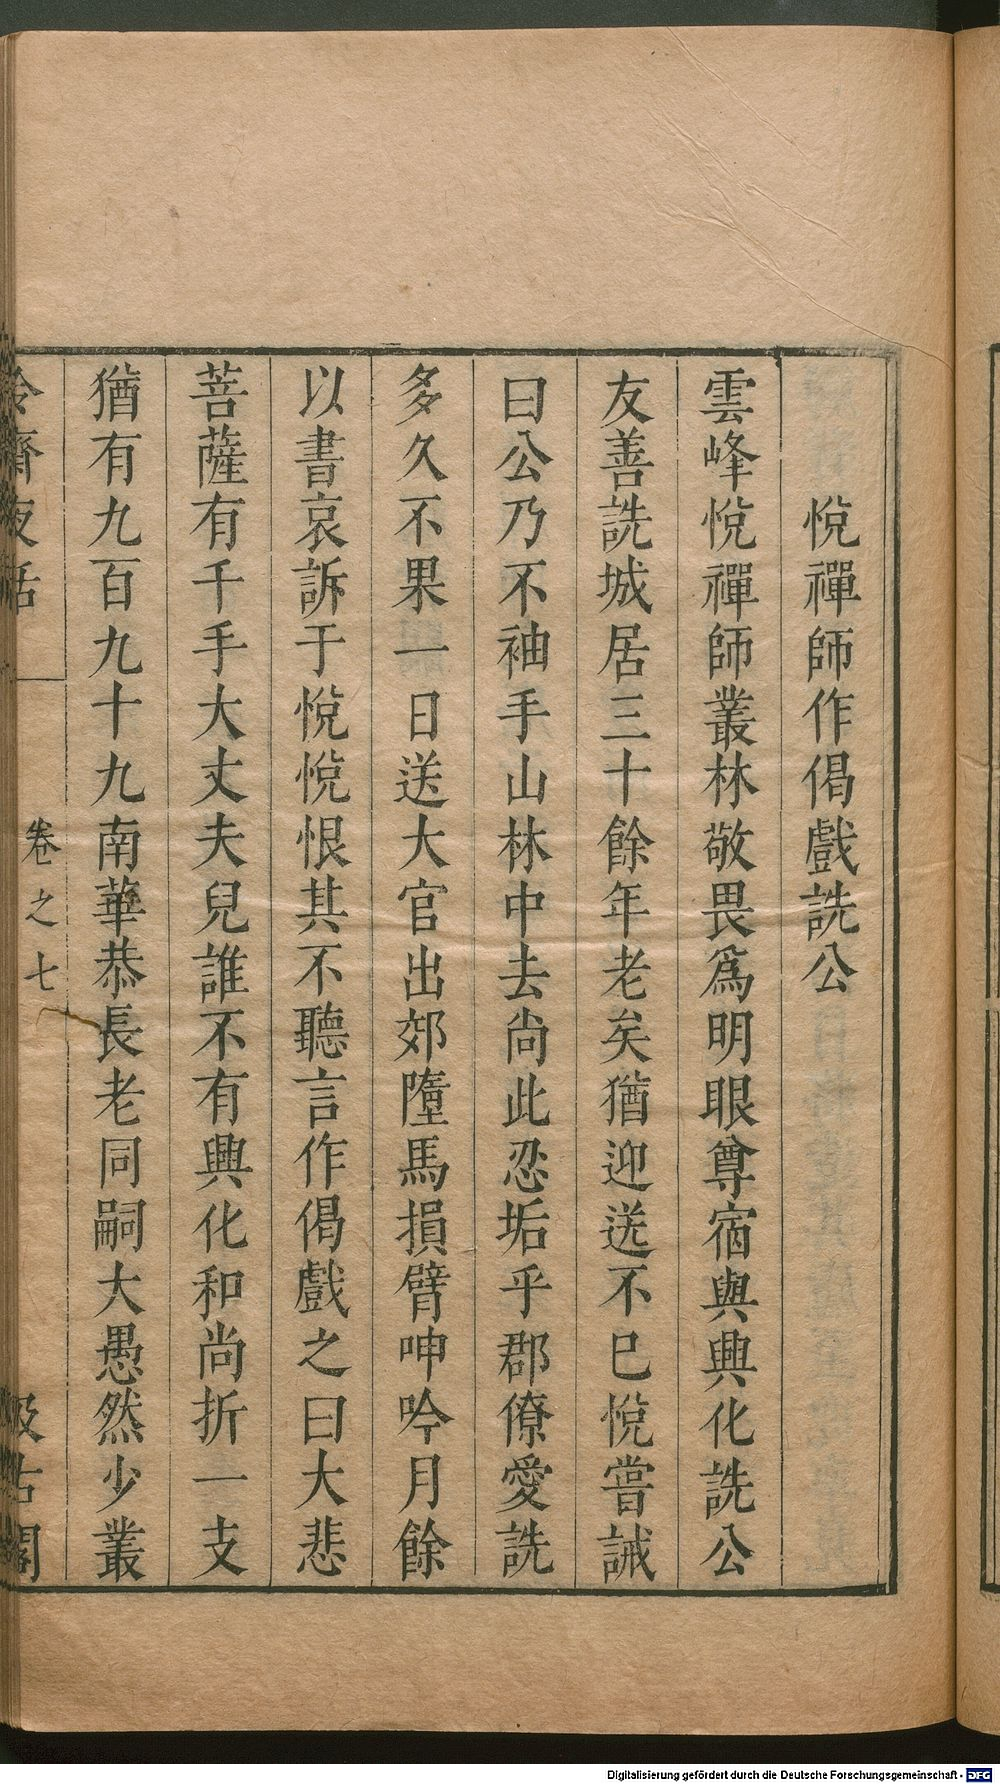 悅禪師作偈戲詵公
雲峰悅禪師叢林敬畏爲明眼尊宿與興化詵公
友善詵城居三十餘年老矣猶迎送不已悅嘗誡
曰公乃不袖手山林中去尚此忍垢乎郡僚愛詵
多久不果一日送大官出郊墮馬損臂呻吟月餘
以書哀訴于悅悅恨其不聽言作偈戲之曰大悲
菩薩有千手大丈夫兒誰不有興化和尚折一支
猶有九百九十九南華恭長老同嗣大愚然少叢
冷齋夜話 卷之七 汲古閣
Digitalisierung gefördert durch die Deutsche Forschungsgemeinschaft - DFG